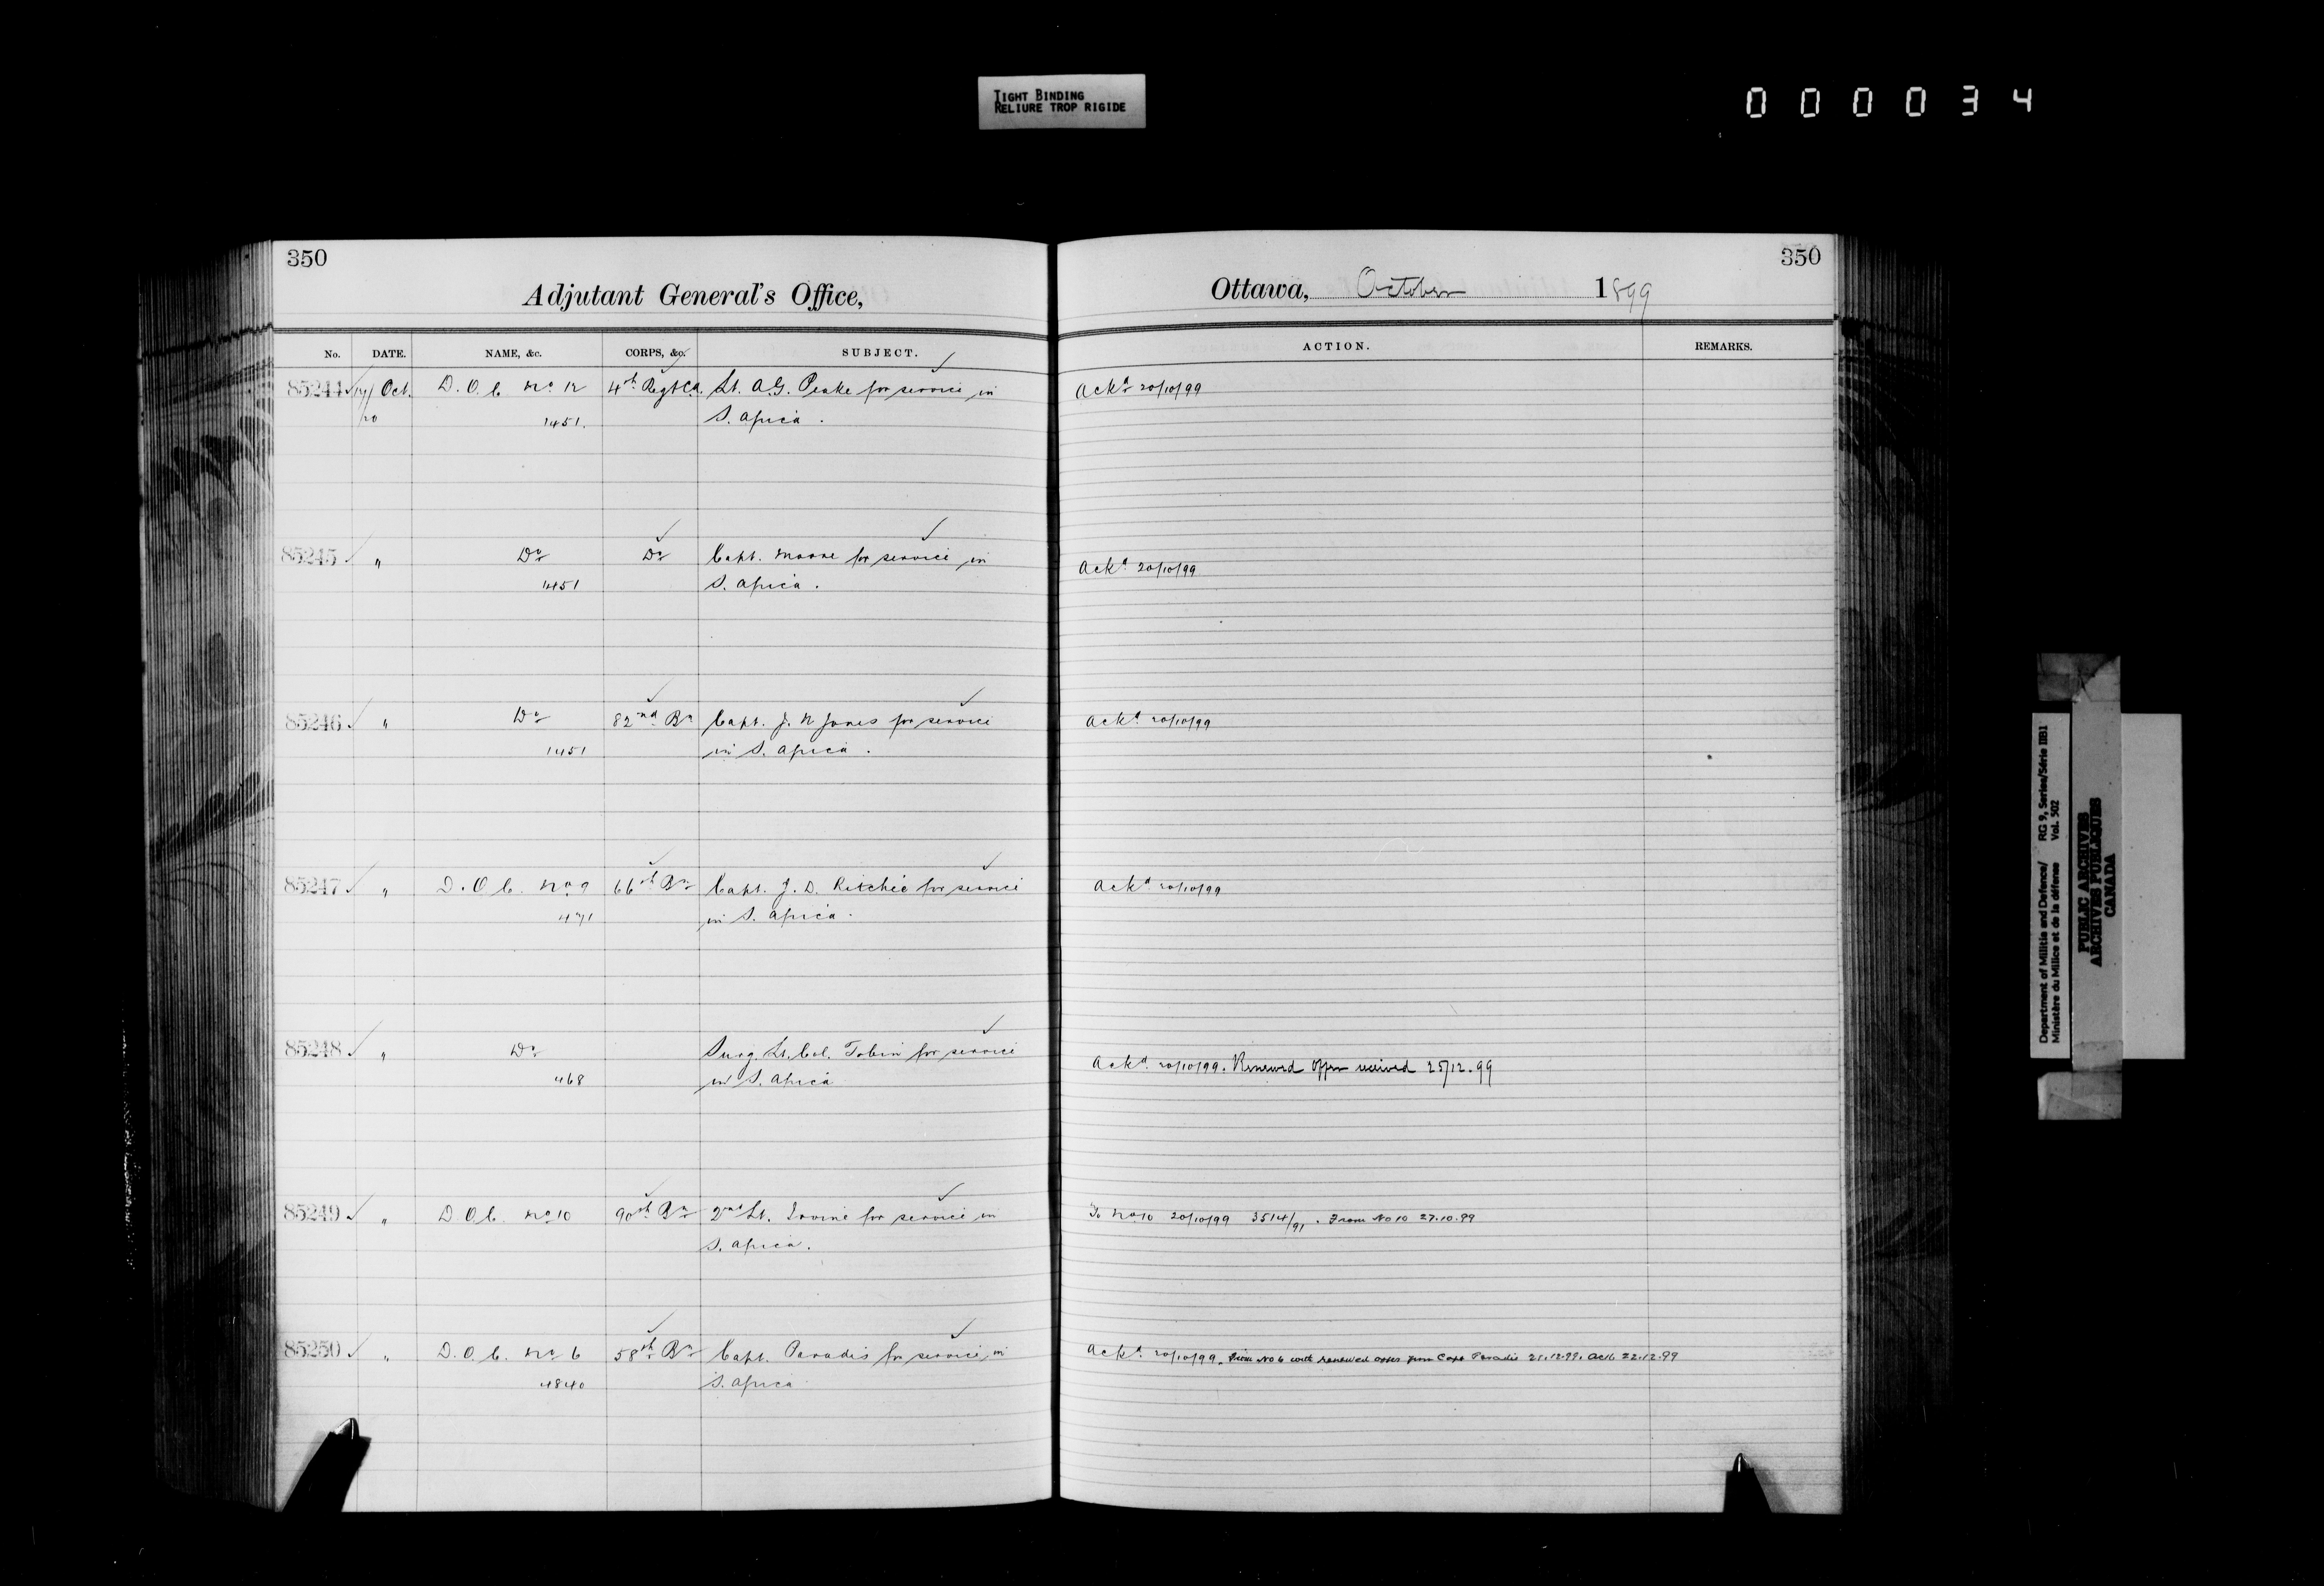 TIGHT BINDING
RELIURE TROP RIGIDE
000034
350
Adjutant General's Office,
No. DATE. NAME, &c. CORPS, &c. SUBJECT.
85244 19/ Oct. D.O.C. No 12 4th Regt C.A. Lt. A.G. Peake for service in
20 1451. S. Africa.
85245 " Do Do Capt. Moore for service in
1451 S. Africa.
85246 " Do 82nd Bn Capt. J. N Jones for service
1451 in S. Africa.
85247 " D.O.C. No 9 66th Bn Capt. J. D. Ritchie for service
471 in S. Africa.
85248 " Do Surg. Lt. Col. Tobin for service
468 in S. Africa
85249 " D.O.C. No 10 90th Bn 2nd Lt. Irvine for service in
S. Africa.
85250 " D.O.C. No 6 58th Bn Capt. Paradis for service in
4840 S. Africa
350
Ottawa, October 1899
ACTION. REMARKS.
Ackd 20/10/99
Ackd 20/10/99
Ackd 20/10/99
Ackd 20/10/99
Ackd 20/10/99. Renewed offer received 25/12.99
To No 10 20/10/99 3514/91. From No 10 27.10.99
Ackd 20/10/99. From No 6 with renewed offer from Capt Paradis 21.12.99. Ack. 22.12.99
Department of Militia and Defence/ RG 9, Series/Série IIB1
Ministère du Milice et de la défense Vol. 502
PUBLIC ARCHIVES
ARCHIVES PUBLIQUES
CANADA